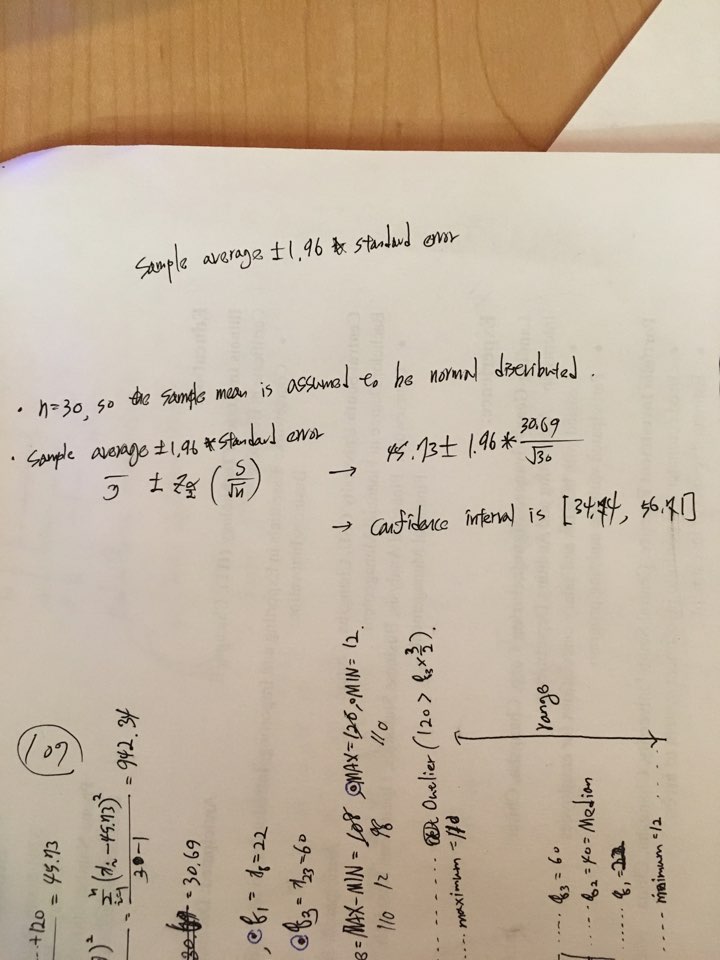 Sample average ±1.96 * standard error
· n=30, so the sample mean is assumed to be normal distributed.
· Sample average ±1.96 * standard error
± Zα/2 (S/√n) → 45.73 ± 1.96 * 30.69/√30
→ confidence interval is [34.74, 56.71]
109
...+120 = 45.73
)² = Σ(xi - 45.73)²/30-1 = 942.34
= 30.69
, q1 = x8 = 22
q3 = x23 = 60
= MAX-MIN = 108, MAX=120, MIN=12.
110 12 98 110
Outlier (120 > q3 × 3/2).
maximum =
range
q3 = 60
q2 = 40 = Median
q1 =
minimum = 12